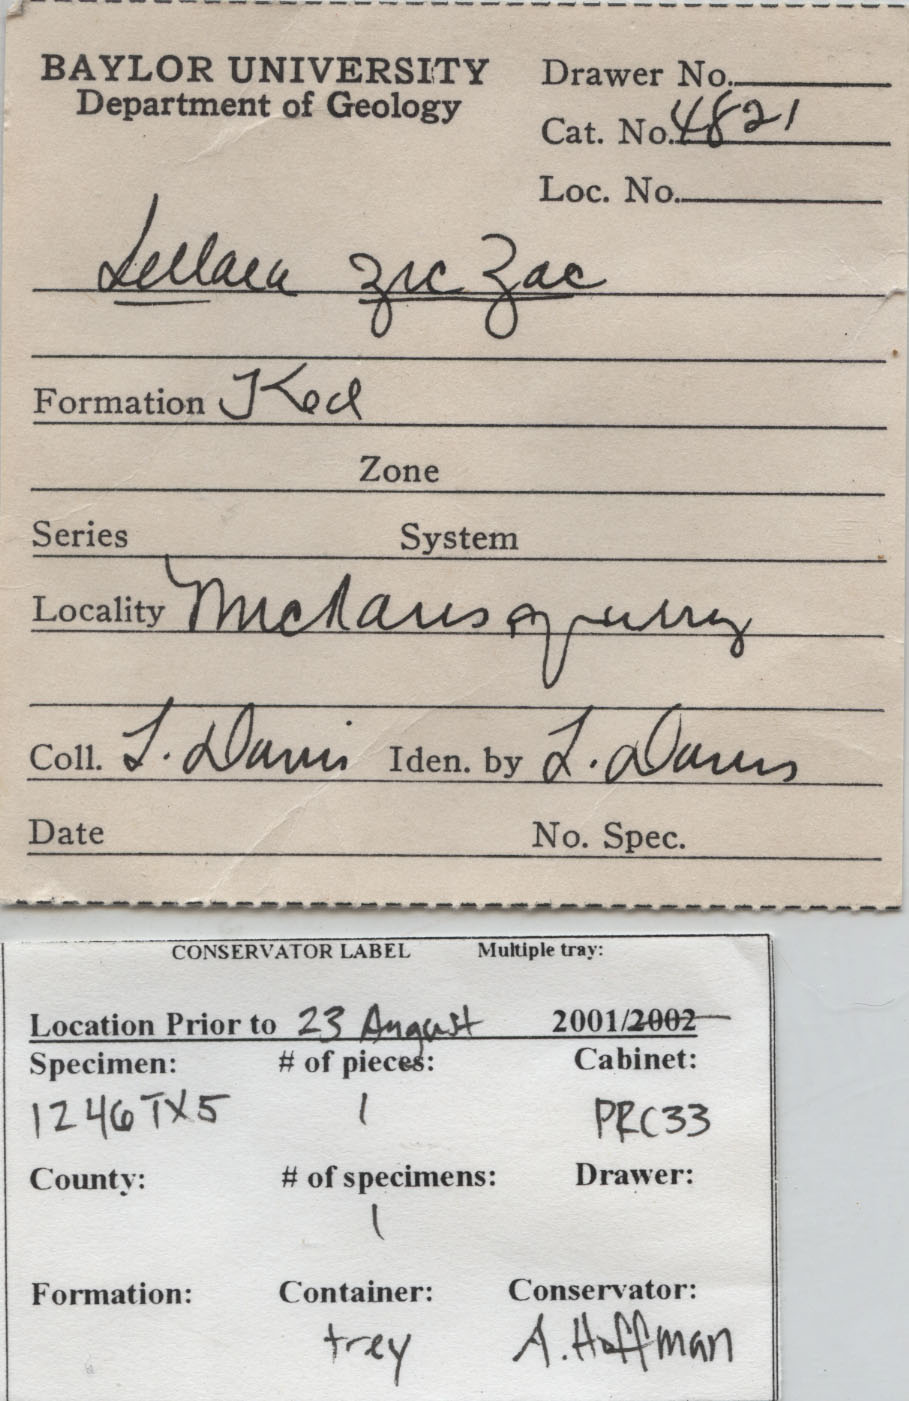 BAYLOR UNIVERSITY
Department of Geology
Drawer No.
Cat. No. 4821
Loc. No.
zic zac
Formation Ked
Zone
Series System
Locality
Coll. L. Davis Iden. by L. Davis
Date No. Spec.
CONSERVATOR LABEL Multiple tray:
Location Prior to 23 August 2001/2002
Specimen: # of pieces: Cabinet:
1246TX5 1 PRC33
County: # of specimens: Drawer:
1
Formation: Container: Conservator:
trey A. Hoffman